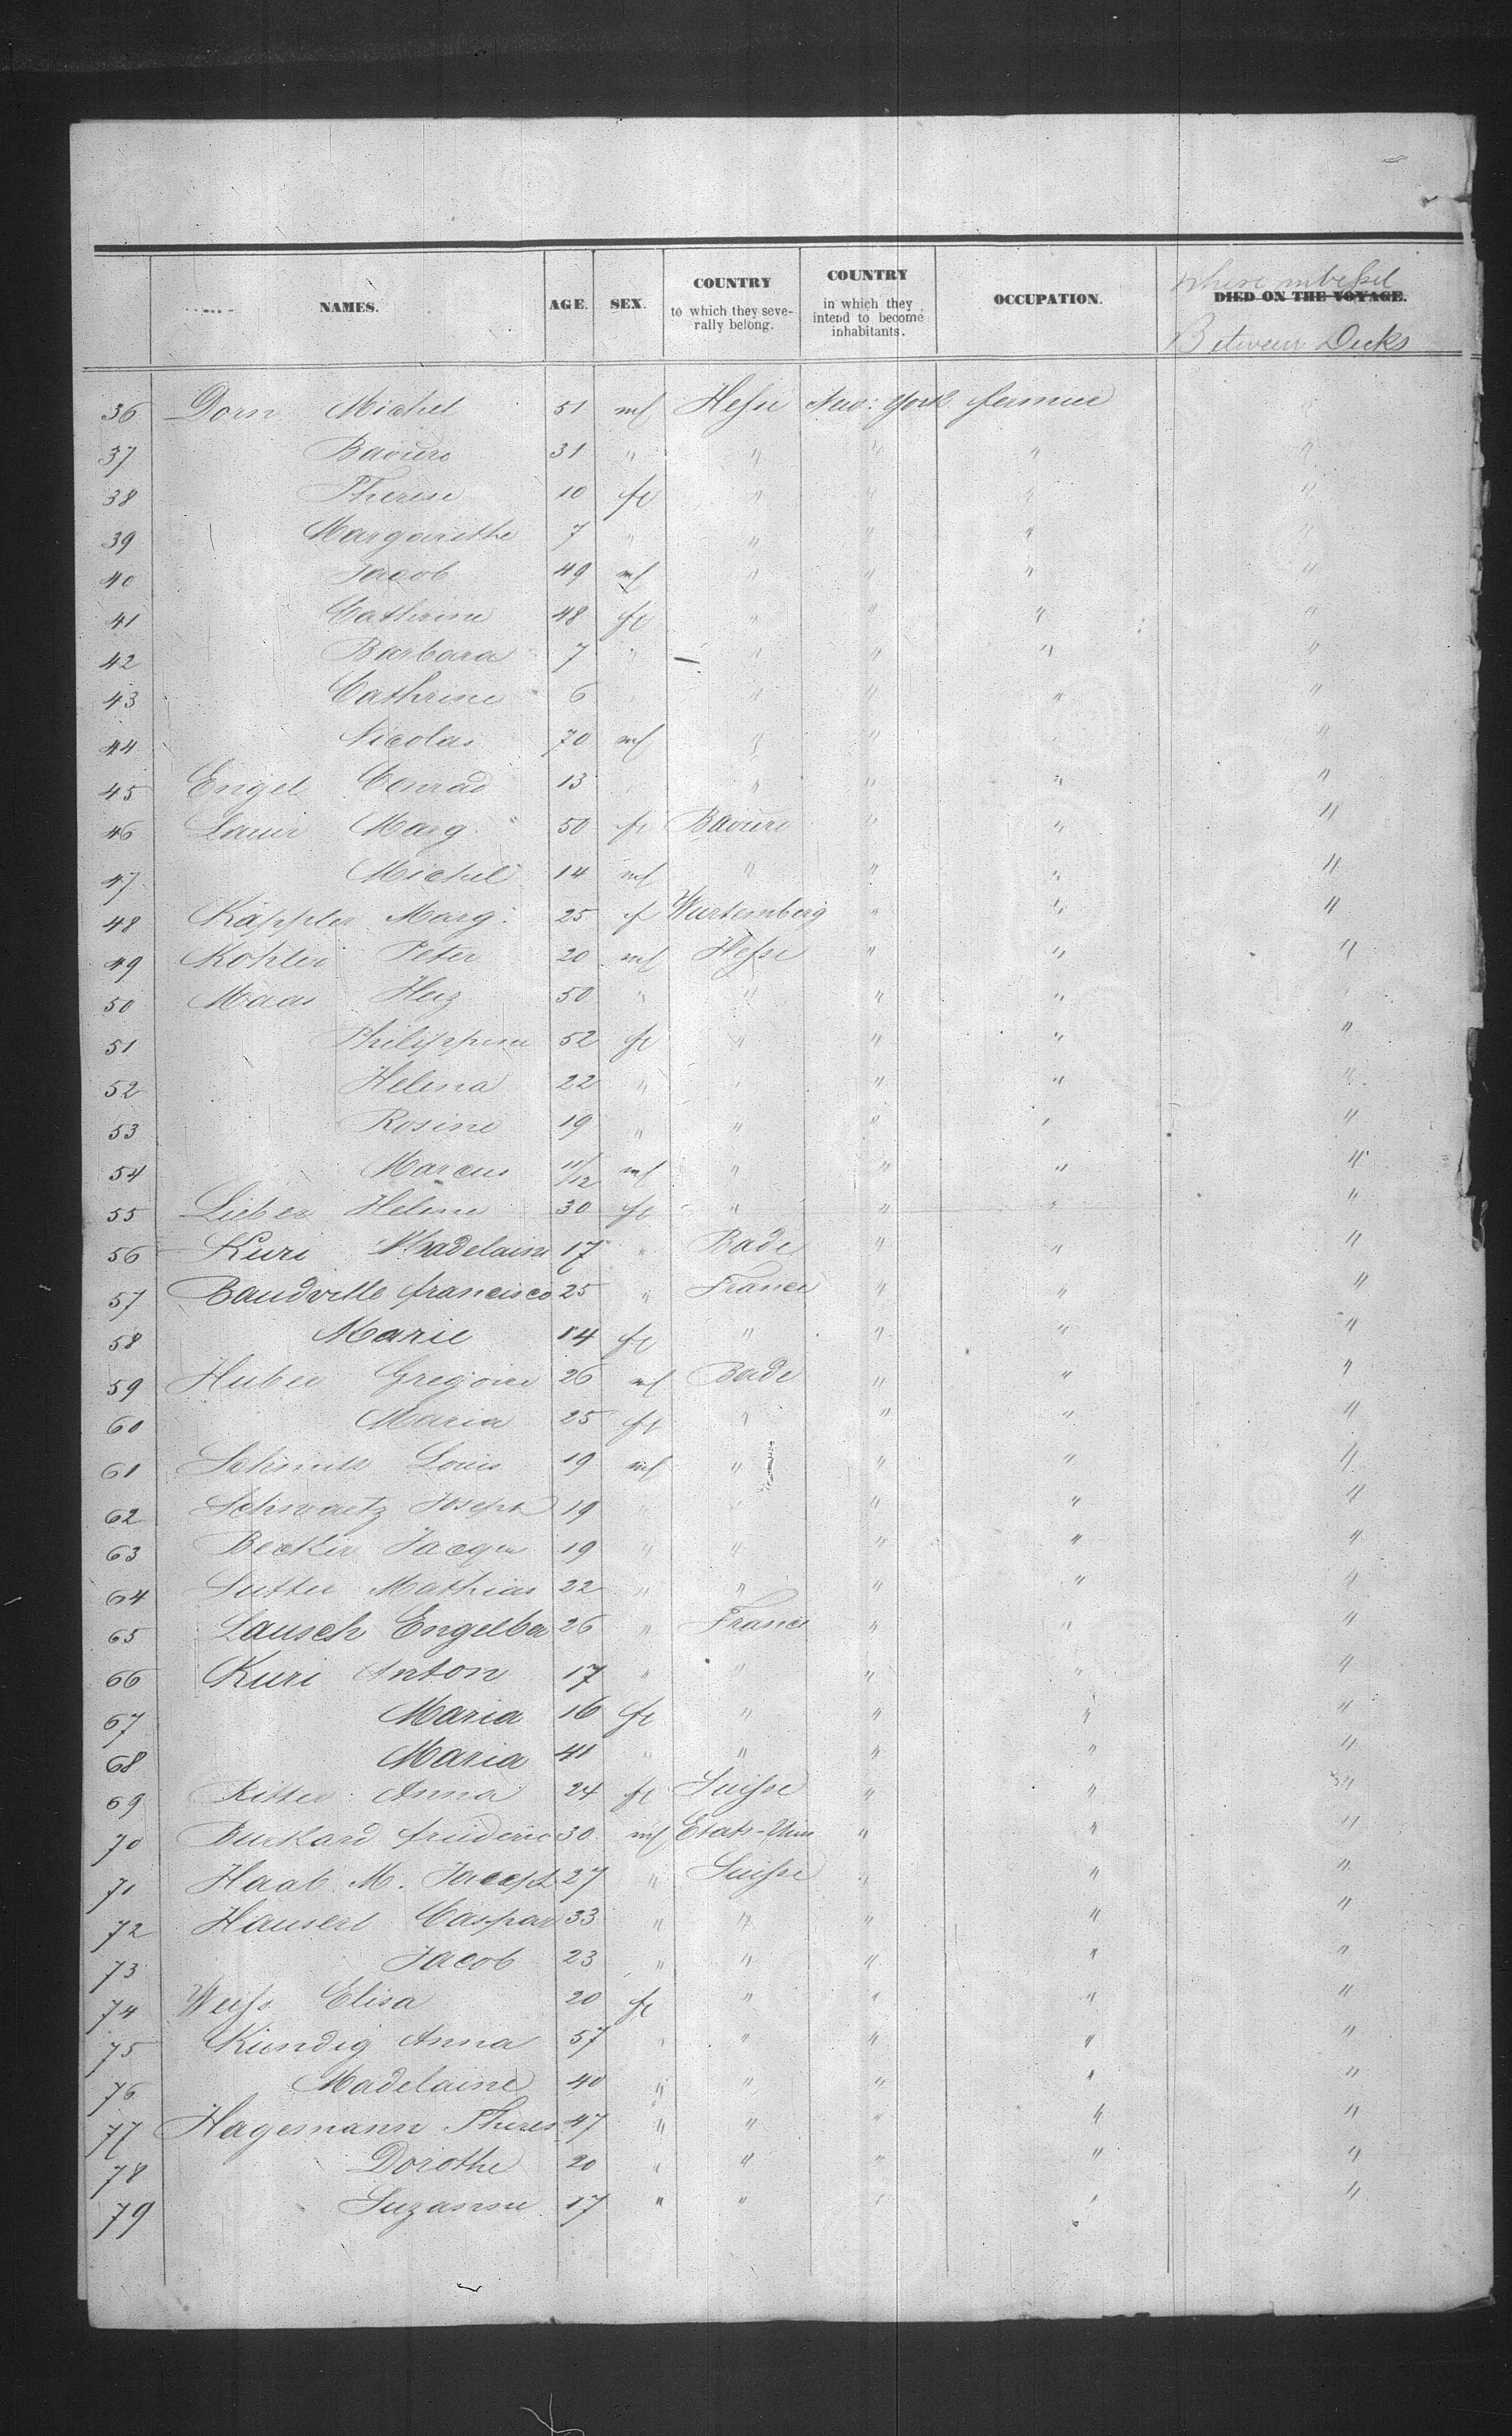 NAMES. AGE. SEX. COUNTRY to which they severally belong. COUNTRY in which they intend to become inhabitants. OCCUPATION. DIED ON THE VOYAGE.
Between Decks
36 Dorn Michel 51 m Hesse New York fermier "
37 Baviere 31 " " " " "
38 Therese 10 fe " " " "
39 Margarethe 7 " " " " "
40 Jacob 49 m " " " "
41 Cathrine 48 fe " " " "
42 Barbara 7 " " " " "
43 Cathrine 6 " " " "
44 Nicolas 70 m " " "
45 Engel Conrad 13 " " " "
46 Lauer Marg. 50 fe Baviere " " "
47 Michel 14 m " " " "
48 Käppler Marg. 25 f Wurtemberg " " "
49 Kohler Peter 20 m Hesse " " "
50 Maas Herz 50 " " " "
51 Philippine 52 fe " " " "
52 Helena 22 " " " "
53 Rosine 19 " " " " "
54 Marcus 11/12 m " " " "
55 Lieber Helene 30 fe " " " "
56 Kuri Madelaine 17 " Bade " " "
57 Baudville francisco 25 " France " " "
58 Marie 14 fe " " " "
59 Huber Gregoire 26 m Bade " " "
60 Maria 25 fe " " " "
61 Schmitt Louis 19 m " " " "
62 Schwartz Joseph 19 " " " " "
63 Becker Jacques 19 " " " " "
64 Sutter Mathias 22 " " " " "
65 Lausch Engelber 26 " France " " "
66 Kuri Anton 17 " " " " "
67 Maria 16 fe " " " "
68 Maria 41 " " " " "
69 Ritter Anna 24 fe Suisse " " "
70 Burkard friederic 30 m Etats-Unis " " "
71 Haab M. Joseph 27 " Suisse " " "
72 Hauserl Caspar 33 " " " " "
73 Jacob 23 " " " " "
74 Weiss Elisa 20 fe " " " "
75 Kündig Anna 57 " " " " "
76 Madelaine 40 " " " " "
77 Hagemann Theres 47 " " " " "
78 Dorothe 20 " " " " "
79 Suzanne 17 " " " " "